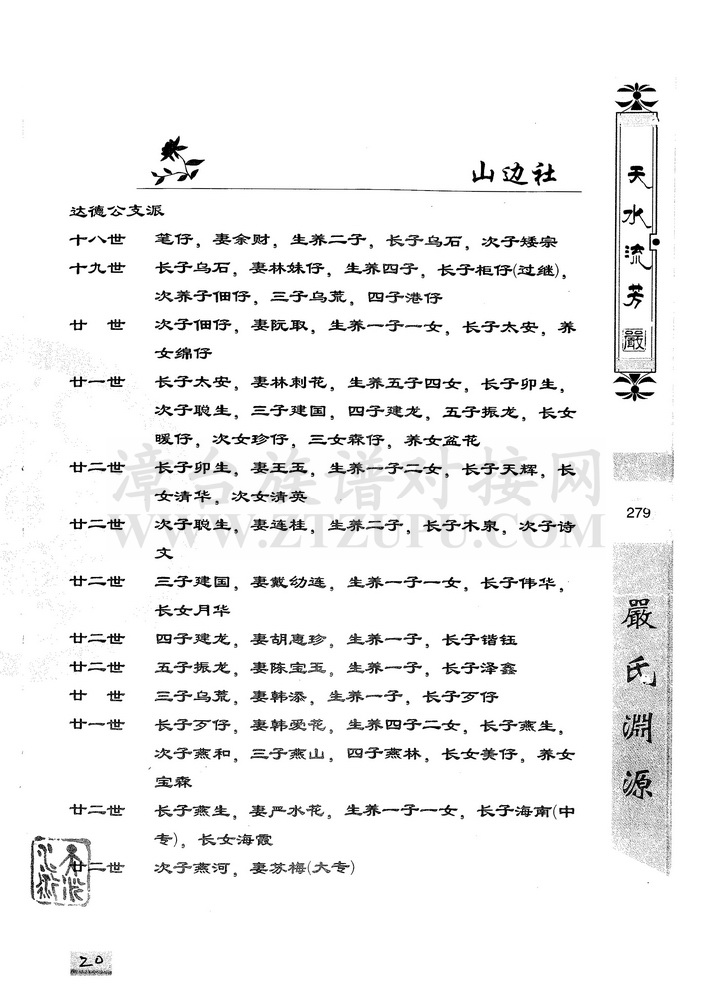 山边社
达德公支派
十八世 笔仔，妻余财，生养二子，长子乌石，次子矮宗
十九世 长子乌石，妻林妹仔，生养四子，长子柜仔(过继)，
次养子佃仔，三子乌荒，四子港仔
廿 世 次子佃仔，妻阮取，生养一子一女，长子太安，养
女绵仔
廿一世 长子太安，妻林刺花，生养五子四女，长子卯生，
次子聪生，三子建国，四子建龙，五子振龙，长女
暖仔，次女珍仔，三女森仔，养女盆花
廿二世 长子卯生，妻王玉，生养一子二女，长子天辉，长
女清华，次女清英
廿二世 次子聪生，妻连桂，生养二子，长子木泉，次子诗
文
廿二世 三子建国，妻戴幼连，生养一子一女，长子伟华，
长女月华
廿二世 四子建龙，妻胡惠珍，生养一子，长子锴钰
廿二世 五子振龙，妻陈宝玉，生养一子，长子泽鑫
廿 世 三子乌荒，妻韩添，生养一子，长子歹仔
廿一世 长子歹仔，妻韩爱花，生养四子二女，长子燕生，
次子燕和，三子燕山，四子燕林，长女美仔，养女
宝森
廿二世 长子燕生，妻严水花，生养一子一女，长子海南(中
专)，长女海霞
廿二世 次子燕河，妻苏梅(大专)
天水流芳
嚴
279
嚴氏淵源
20
漳台族谱对接网
WWW.ZTZUPU.COM